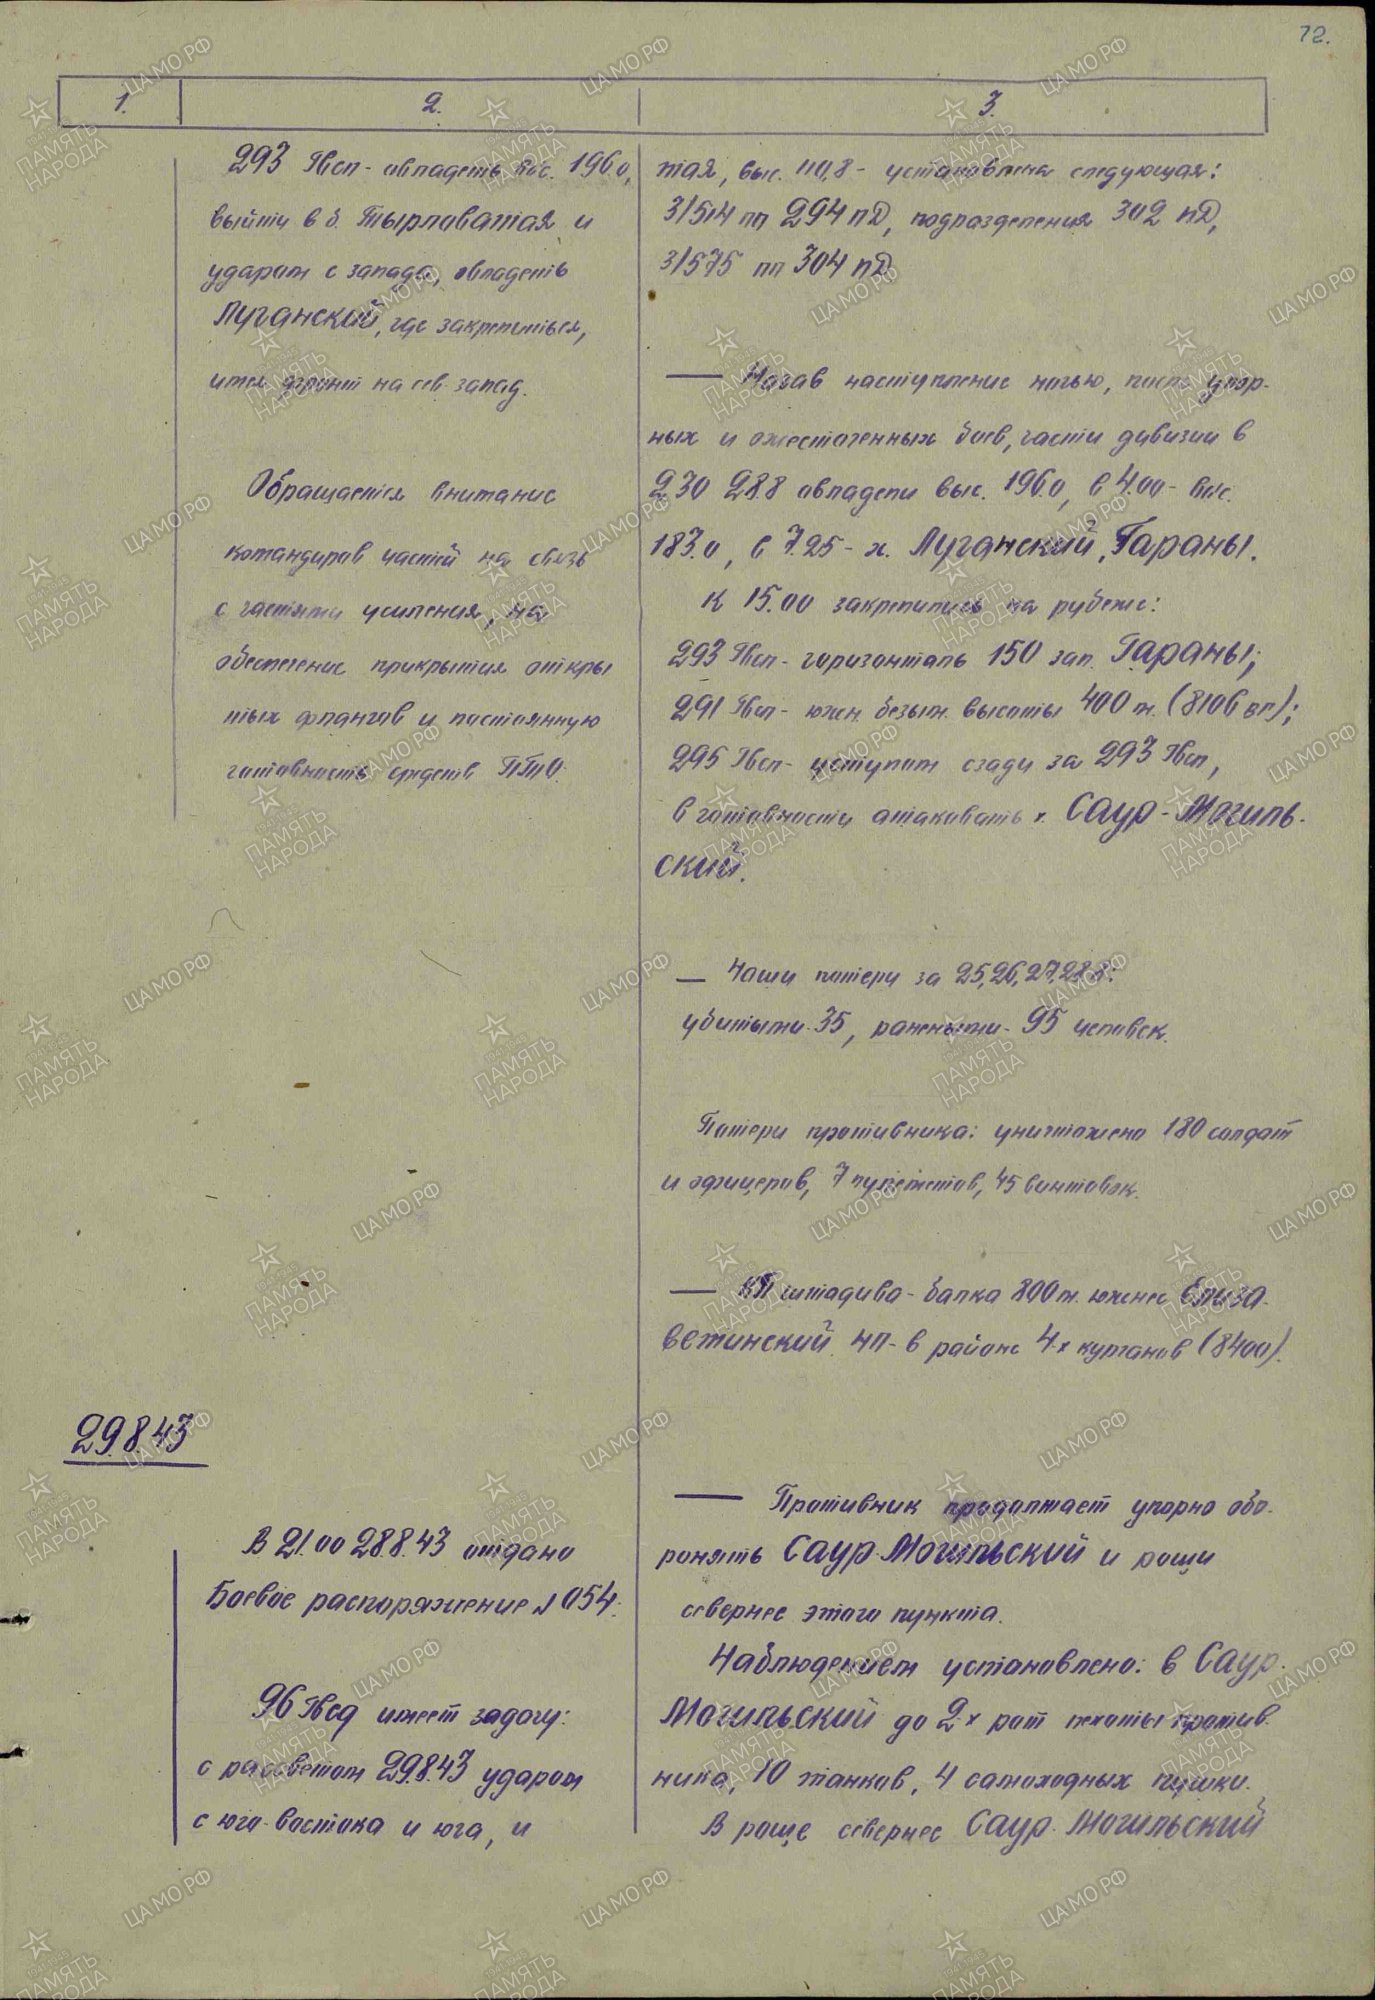 72.
1. 2. 3.
293 Гвсп - овладеть выс. 196.0,
выйти в б. Тырловатая и
ударом с запада, овладеть
Луганский, где закрепиться,
имея фронт на сев. запад.
Обращается внимание
командиров частей на связь
с частями усиления, на
обеспечение прикрытия откры
тых флангов и постоянную
готовность средств ПТО.
тая, выс. 110,8 - установлена следующая:
3/514 пп 294 пД, подразделения 302 пД,
3/575 пп 304 пД
— Начав наступление ночью, после упор-
ных и ожесточенных боев, части дивизии в
2.30 28.8 овладели выс. 196.0, в 4.00 - выс.
183.0, в 7.25 - х. Луганский, Гараны.
К 15.00 закрепились на рубеже:
293 Гвсп - горизонталь 150 зап. Гараны;
291 Гвсп - южн. безым. высоты 400 м. (8106 вг);
295 Гвсп - уступом сзади за 293 Гвсп,
в готовности атаковать х. Саур-Могиль-
ский.
— Наши потери за 25,26,27,28.8:
убитыми - 35, ранеными - 95 человек.
Потери противника: уничтожено 180 солдат
и офицеров, 7 пулеметов, 45 винтовок.
— КП штадива - балка 800 м. южнее Елиза-
ветинский НП - в районе 4-х курганов (8400).
29.8.43
В 21.00 28.8.43 отдано
Боевое распоряжение № 054.
96 Гвсд имеет задачу:
с рассветом 29.8.43 ударом
с юго-востока и юга, и
— Противник продолжает упорно обо-
ронять Саур-Могильский и рощи
севернее этого пункта.
Наблюдением установлено: в Саур-
Могильский до 2-х рот пехоты против-
ника, 10 танков, 4 самоходных пушки.
В роще севернее Саур-Могильский
ЦАМО РФ
1941-1945
ПАМЯТЬ
НАРОДА